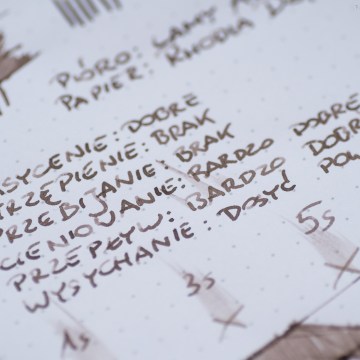 PIÓRO: LAMY
PAPIER: RHODIA
SYCENIE: DOBRE
STRZĘPIENIE: BRAK
PRZEBIJANIE: BRAK
CIENIOWANIE: BARDZO DOBRE
PRZEPŁYW: BARDZO DOBR
WYSYCHANIE: DOSYĆ POW
1s 3s 5s
X X